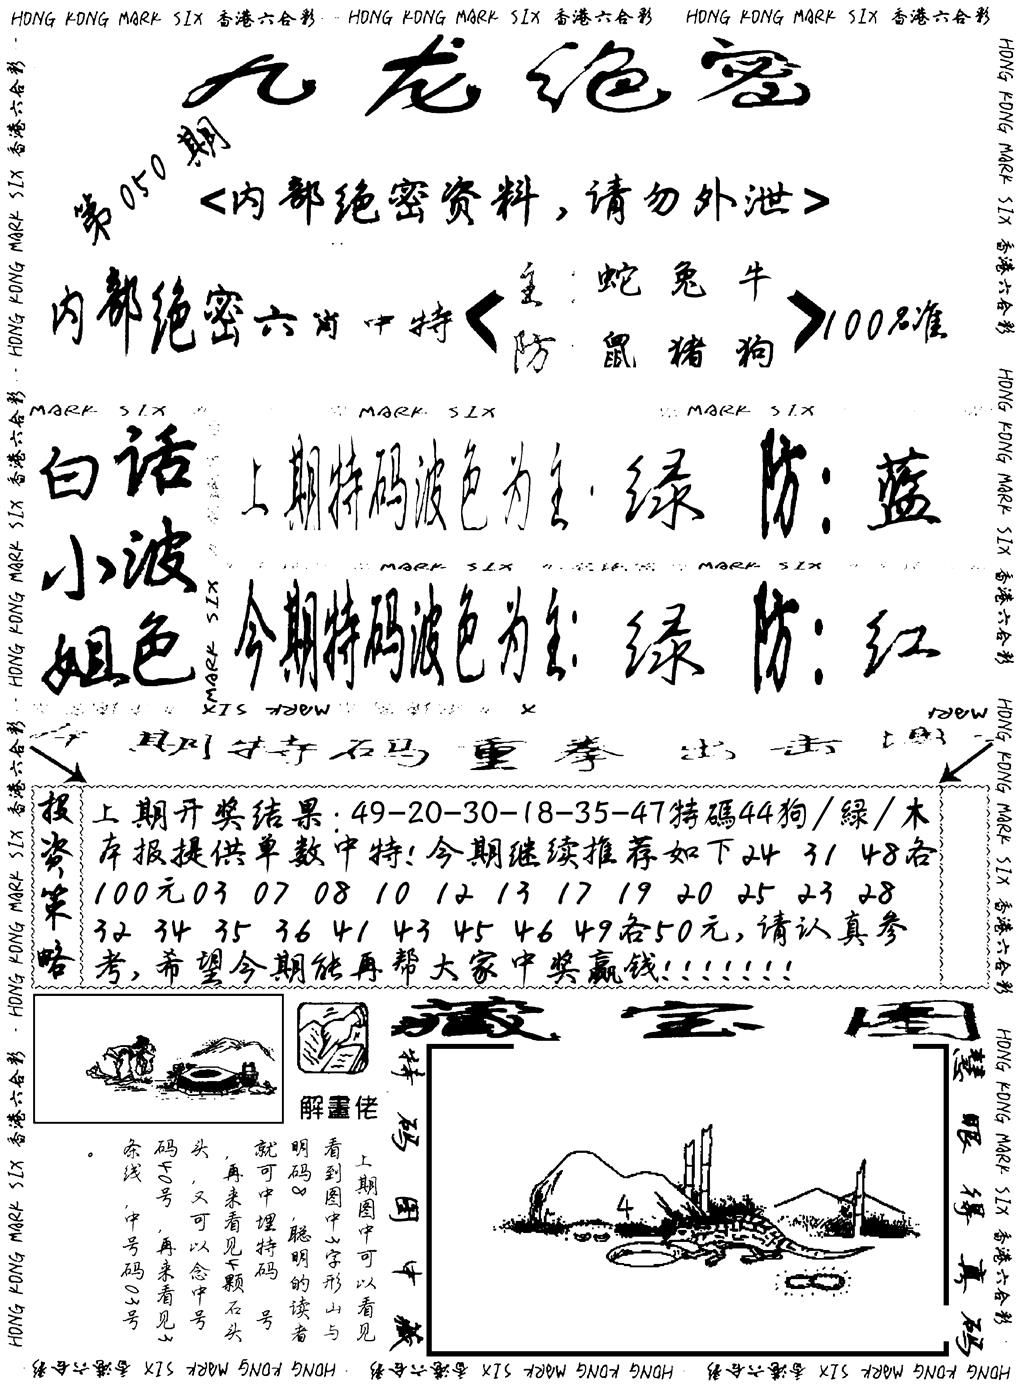 HONG KONG MARK SIX 香港六合彩 HONG KONG MARK SIX 香港六合彩 HONG KONG MARK SIX 香港六合彩
九龙绝密
第050期
<内部绝密资料，请勿外泄>
内部绝密六肖中特
主：蛇 兔 牛
防：鼠 猪 狗
100%准
MARK SIX MARK SIX MARK SIX
白话
小波
姐色
上期特码波色为主：绿 防：蓝
MARK SIX MARK SIX
今期特码波色为主：绿 防：红
MARK SIX
今期特码重拳出击
投资策略
上期开奖结果：49-20-30-18-35-47特碼44狗/緑/木
本报提供单数中特！今期继续推荐如下24 31 48各
100元03 07 08 10 12 13 17 19 20 25 23 28
32 34 35 36 41 43 45 46 49各50元，请认真参
考，希望今期能再帮大家中奖赢钱！！！！！！！
解畫佬
上期图中可以看见
看到图中3字形山与
明码8，聪明的读者
就可中埋特码 号
，再来看见4颗石头
头，又可以念中号
码40号，再来看见3
条线，中号码03号
。
藏宝图
特码图中藏
慧眼得真码
4
HONG KONG MARK SIX 香港六合彩 HONG KONG MARK SIX 香港六合彩 HONG KONG MARK SIX 香港六合彩